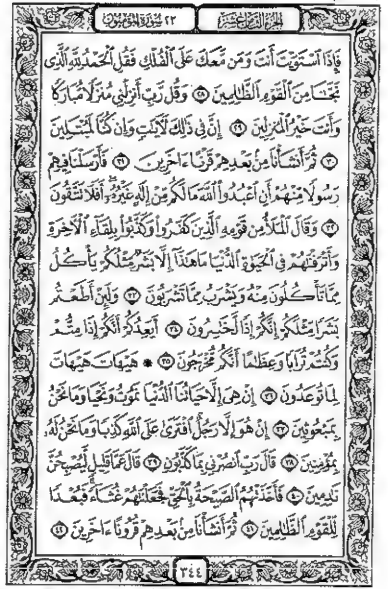 الجزء الثامن عشر ٢٣ سورة المؤمنون
فَإِذَا ٱسْتَوَيْتَ أَنتَ وَمَن مَّعَكَ عَلَى ٱلْفُلْكِ فَقُلِ ٱلْحَمْدُ لِلَّهِ ٱلَّذِى
نَجَّىٰنَا مِنَ ٱلْقَوْمِ ٱلظَّـٰلِمِينَ ٢٨ وَقُل رَّبِّ أَنزِلْنِى مُنزَلًا مُّبَارَكًا
وَأَنتَ خَيْرُ ٱلْمُنزِلِينَ ٢٩ إِنَّ فِى ذَٰلِكَ لَـَٔايَـٰتٍ وَإِن كُنَّا لَمُبْتَلِينَ
٣٠ ثُمَّ أَنشَأْنَا مِنۢ بَعْدِهِمْ قَرْنًا ءَاخَرِينَ ٣١ فَأَرْسَلْنَا فِيهِمْ
رَسُولًا مِّنْهُمْ أَنِ ٱعْبُدُوا۟ ٱللَّهَ مَا لَكُم مِّنْ إِلَـٰهٍ غَيْرُهُۥٓ أَفَلَا تَتَّقُونَ
٣٢ وَقَالَ ٱلْمَلَأُ مِن قَوْمِهِ ٱلَّذِينَ كَفَرُوا۟ وَكَذَّبُوا۟ بِلِقَآءِ ٱلْـَٔاخِرَةِ
وَأَتْرَفْنَـٰهُمْ فِى ٱلْحَيَوٰةِ ٱلدُّنْيَا مَا هَـٰذَآ إِلَّا بَشَرٌ مِّثْلُكُمْ يَأْكُلُ
مِمَّا تَأْكُلُونَ مِنْهُ وَيَشْرَبُ مِمَّا تَشْرَبُونَ ٣٣ وَلَئِنْ أَطَعْتُم
بَشَرًا مِّثْلَكُمْ إِنَّكُمْ إِذًا لَّخَـٰسِرُونَ ٣٤ أَيَعِدُكُمْ أَنَّكُمْ إِذَا مِتُّمْ
وَكُنتُمْ تُرَابًا وَعِظَـٰمًا أَنَّكُم مُّخْرَجُونَ ٣٥ * هَيْهَاتَ هَيْهَاتَ
لِمَا تُوعَدُونَ ٣٦ إِنْ هِىَ إِلَّا حَيَاتُنَا ٱلدُّنْيَا نَمُوتُ وَنَحْيَا وَمَا نَحْنُ
بِمَبْعُوثِينَ ٣٧ إِنْ هُوَ إِلَّا رَجُلٌ ٱفْتَرَىٰ عَلَى ٱللَّهِ كَذِبًا وَمَا نَحْنُ لَهُۥ
بِمُؤْمِنِينَ ٣٨ قَالَ رَبِّ ٱنصُرْنِى بِمَا كَذَّبُونِ ٣٩ قَالَ عَمَّا قَلِيلٍ لَّيُصْبِحُنَّ
نَـٰدِمِينَ ٤٠ فَأَخَذَتْهُمُ ٱلصَّيْحَةُ بِٱلْحَقِّ فَجَعَلْنَـٰهُمْ غُثَآءً فَبُعْدًا
لِّلْقَوْمِ ٱلظَّـٰلِمِينَ ٤١ ثُمَّ أَنشَأْنَا مِنۢ بَعْدِهِمْ قُرُونًا ءَاخَرِينَ ٤٢
٣٤٤